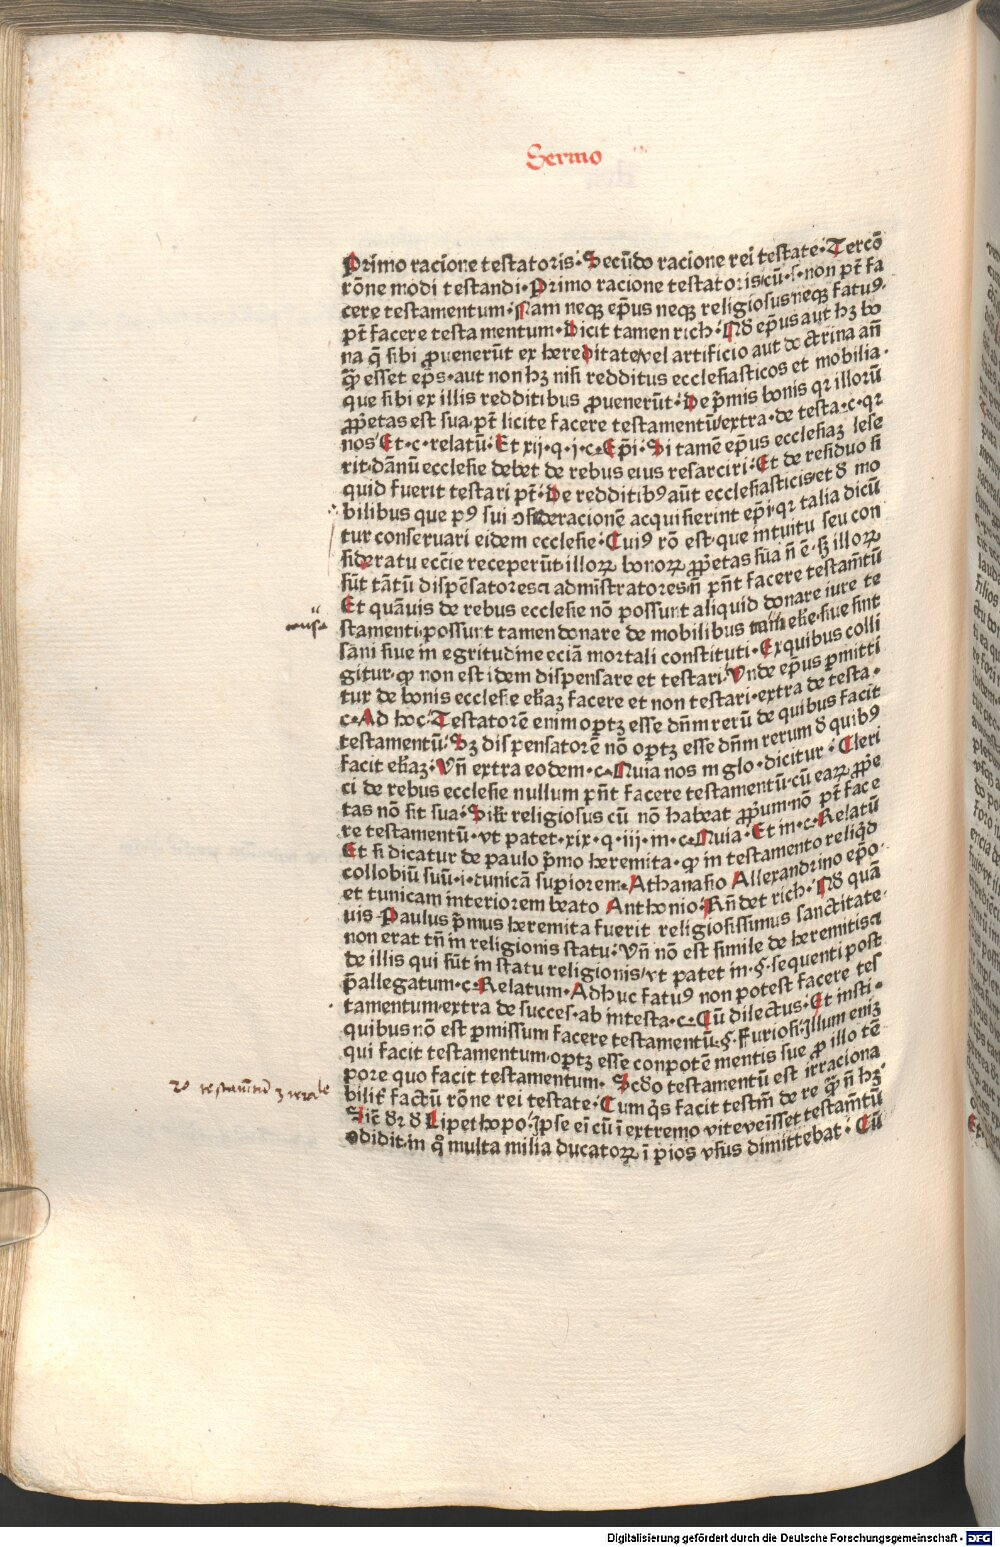 Sermo
Primo racione testatoris· Secūdo racione rei testate· Tercō
rōne modi testandi· Primo racione testatoris cū·s·non pt̄ fa
cere testamentum· Nam neqꝫ ep̄us neqꝫ religiosus neqꝫ fatuꝰ
pt̄ facere testamentum· Dicit tamen rich· Nd ep̄us aut hꝫ bo
na q̄ sibi ꝓuenerūt ex hereditate vel artificio aut doctrina an̄
qꝫ̄ esset ep̄s· aut non hꝫ nisi redditus ecclesiasticos et mobilia·
que sibi ex illis redditibus ꝓuenerūt· De p̄mis bonis qr illorū
ꝓp̄etas est sua pt̄ licite facere testamentū extra· de testa·c·qr
nos Et·c·relatū· Et xij·q·j·c· Ep̄i· Si tamē ep̄us ecclesiaꝫ lese
rit dānū ecclesie debet de rebus eius resarciri· Et de residuo si
quid fuerit testari pt̄· De redditibꝰ aūt ecclesiasticis et d mo
bilibus que pꝰ sui ↄsideracionē acquisierint ep̄i qr talia dicū
tur conseruari eidem ecclesie· Cuiꝰ rō est· que intuitu seu con
sideratu ecc̄ie receperūt illoꝝ bonoꝝ ꝓp̄etas sua n̄ ē· sꝫ illoꝝ
sūt tātū dispēsatores ca admīstratores n̄ pn̄t facere testam̄tū
Et quāuis de rebus ecclesie nō possunt aliquid donare iure te
stamenti possunt tamen donare de mobilibus siue sint
sani siue in egritudine eciā mortali constituti· Ex quibus colli
gitur· ꝙ non est idem dispensare et testari· Vnde ep̄us pmitti
tur de bonis ecclesie eliaꝫ facere et non testari· extra de testa·
c· Ad hoc· Testatorē enim oportꝫ esse dn̄m rerū de quibus facit
testamentū· Sꝫ dispensatorē nō oportꝫ esse dn̄m rerum d quibꝰ
facit eliaꝫ· Vn̄ extra eodem·c· Quia nos in glo· dicitur· Cleri
ci de rebus ecclesie nullum pn̄t facere testamentū· cū eaꝝ ꝓp̄e
tas nō sit sua· Silr religiosus cū nō habeat ꝓpum nō pt̄ face
re testamentū· vt patet·xix·q·iii·in·c· Quia· Et in·c· Relatū
Et si dicatur de paulo p̄mo heremita· ꝙ in testamento reliqd
collobiū suū·i·tunicā supiorem· Athanasio Allexandrino ep̄o·
et tunicam interiorem beato Anthonio· Rn̄det rich· Nd quā
uis Paulus p̄mus heremita fuerit religiosissimus sanctitate·
non erat tn̄ in religionis statu· Vn̄ nō est simile de heremitis ca
de illis qui sūt in statu religionis vt patet in·§·sequenti post
p̄allegatum·c· Relatum· Adhuc fatuꝰ non potest facere tes
tamentum extra de succes· ab intesta·c· Cū dilectus· Et insti·
quibus nō est pmissum facere testamentū·§· Furiosi· Illum eniꝫ
qui facit testamentum oportꝫ esse conpotē mentis sue ꝓ illo tē
pore quo facit testamentum· Scdo testamentū est irraciona
bilir factū rōne rei testate· Cum qs facit testm̄ de re qꝫ̄ n̄ hꝫ·
Sic̄ dr d Lipethopo· Ipse ei cū ī extremo vite veīsset testam̄tū
ↄdidit in q multa milia ducatoꝝ ī pios vsus dimittebat· Cū
Digitalisierung gefördert durch die Deutsche Forschungsgemeinschaft - DFG